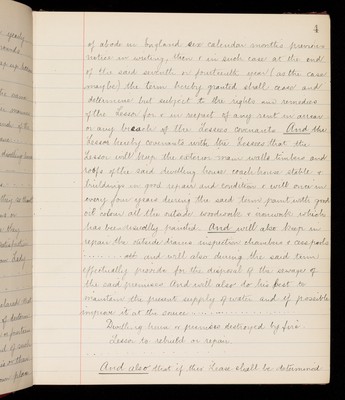 4
of abode in England six calendar months previous
notice in writing, then & in such case at the end
of the said seventh or fourteenth year (as the case
may be) the term hereby granted shall cease and
determine but subject to the rights and remedies
of the Lessor for & in respect of any rent in arrear
or any breach of the Lessees covenants And the
Lessor hereby covenants with the Lessees that the
Lessor will keep the exterior main walls timbers and
roofs of the said dwelling house coach house stable &
buildings in good repair and condition & will once in
every four years during the said term paint with good
oil colour all the outside woodwork & ironwork which
has been usually painted. And will also keep in
repair the outside drains inspection chambers & cesspools
off and will also during the said term
effectually provide for the disposal of the sewage of
the said premises And will also do his best to
maintain the present supply of water and if possible
improve it at the source
Dwelling house or premises destroyed by fire
Lessor to rebuild or repair.
And also that if this Lease shall be determined